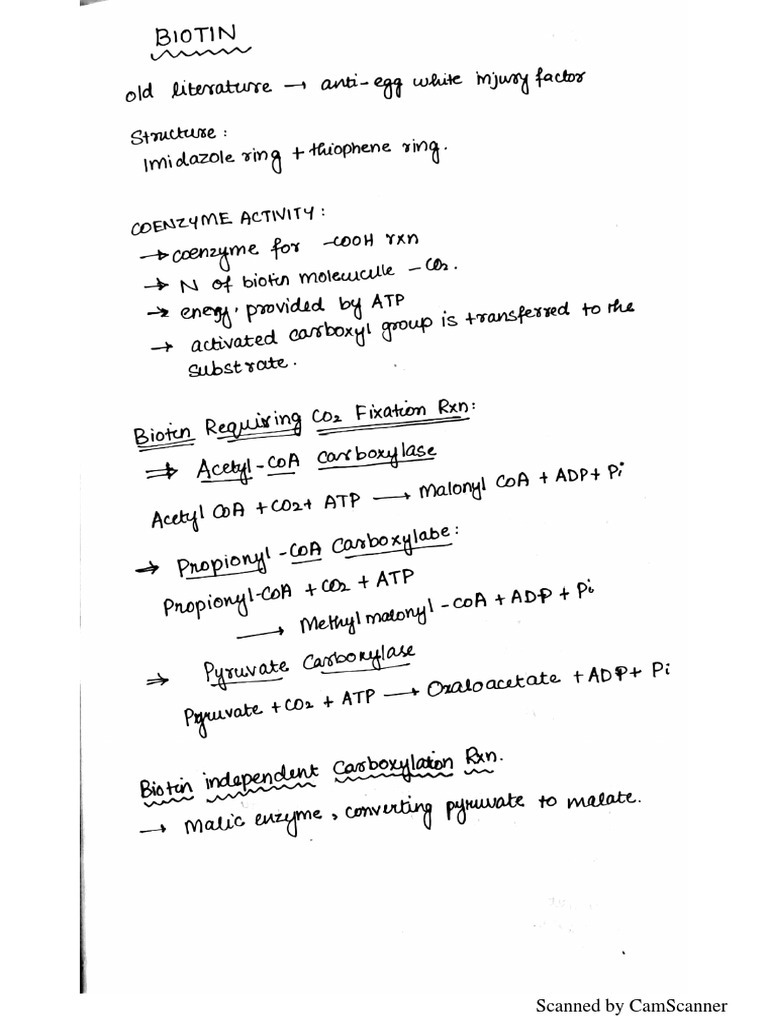 BIOTIN
old literature → anti-egg white injury factor
Structure:
Imidazole ring + thiophene ring.
COENZYME ACTIVITY:
→ coenzyme for -COOH rxn
→ N of biotin molecuculle - CO2.
→ energy, provided by ATP
→ activated carboxyl group is transferred to the
substrate.
Biotin Requiring CO2 Fixation Rxn:
⇒ Acetyl-CoA carboxylase
Acetyl CoA + CO2 + ATP → Malonyl CoA + ADP + Pi
⇒ Propionyl-CoA Carboxylabe:
Propionyl-CoA + CO2 + ATP
→ Methyl malonyl-CoA + ADP + Pi
⇒ Pyruvate Carboxylase
Pyruvate + CO2 + ATP → Oxaloacetate + ADP + Pi
Biotin independent Carboxylation Rxn.
→ Malic enzyme, converting pyruvate to malate.
Scanned by CamScanner